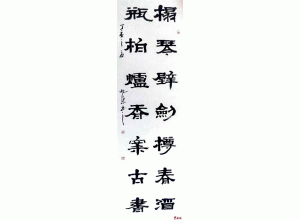 榻琴壁劍樽春酒
瓶柏爐香案古書